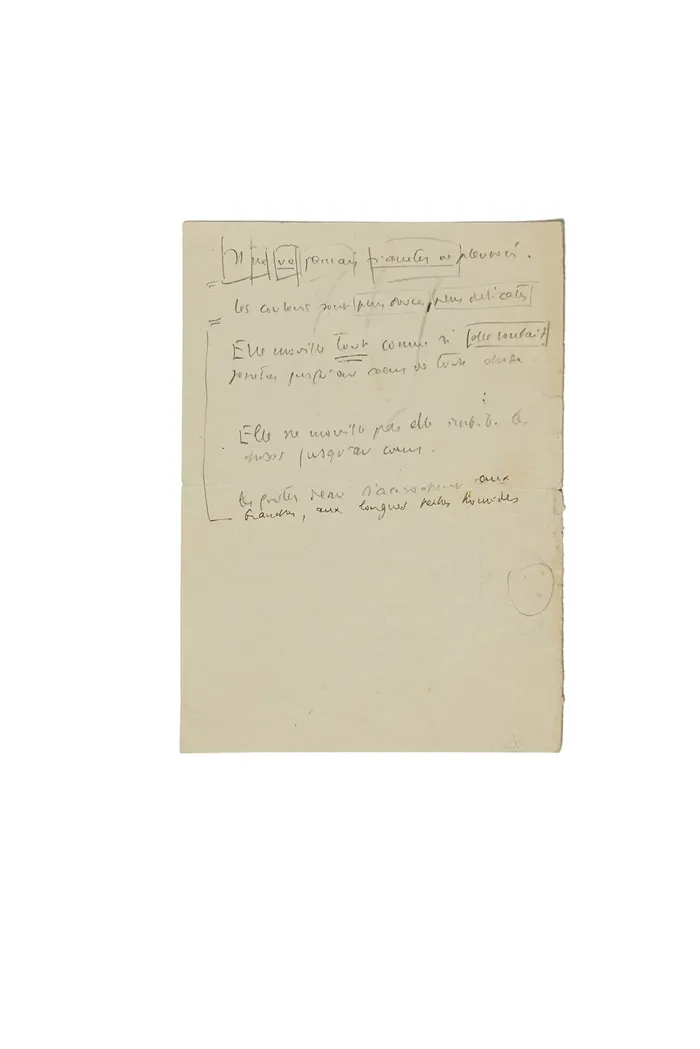 Il ne va jamais s'arrêter de pleuvoir.
les couleurs sont plus douces, plus délicates
Elle mouille tout comme si elle voulait
pénétrer jusqu'au de toute chose.
Elle ne mouille pas elle les
choses jusqu'au cœur.
les gouttes d'eau s'accrochent aux
branches, aux longues humides